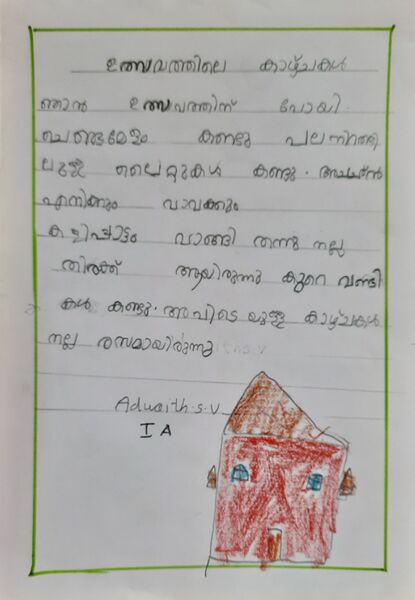 ഉത്സവത്തിലെ കാഴ്ചകൾ
ഞാൻ ഉത്സവത്തിന് പോയി.
ചെണ്ടമേളം കണ്ടു പല നിറത്തി
ലുള്ള ലൈറ്റുകൾ കണ്ടു. അച്ഛൻ
എനിക്കും വാവക്കും
കളിപ്പാട്ടം വാങ്ങി തന്നു നല്ല
തിരക്ക് ആയിരുന്നു കുറെ വണ്ടി
കൾ കണ്ടു. അവിടെ യുള്ള കാഴ്ചകൾ
നല്ല രസമായിരുന്നു
Adwaith.S.V
I A